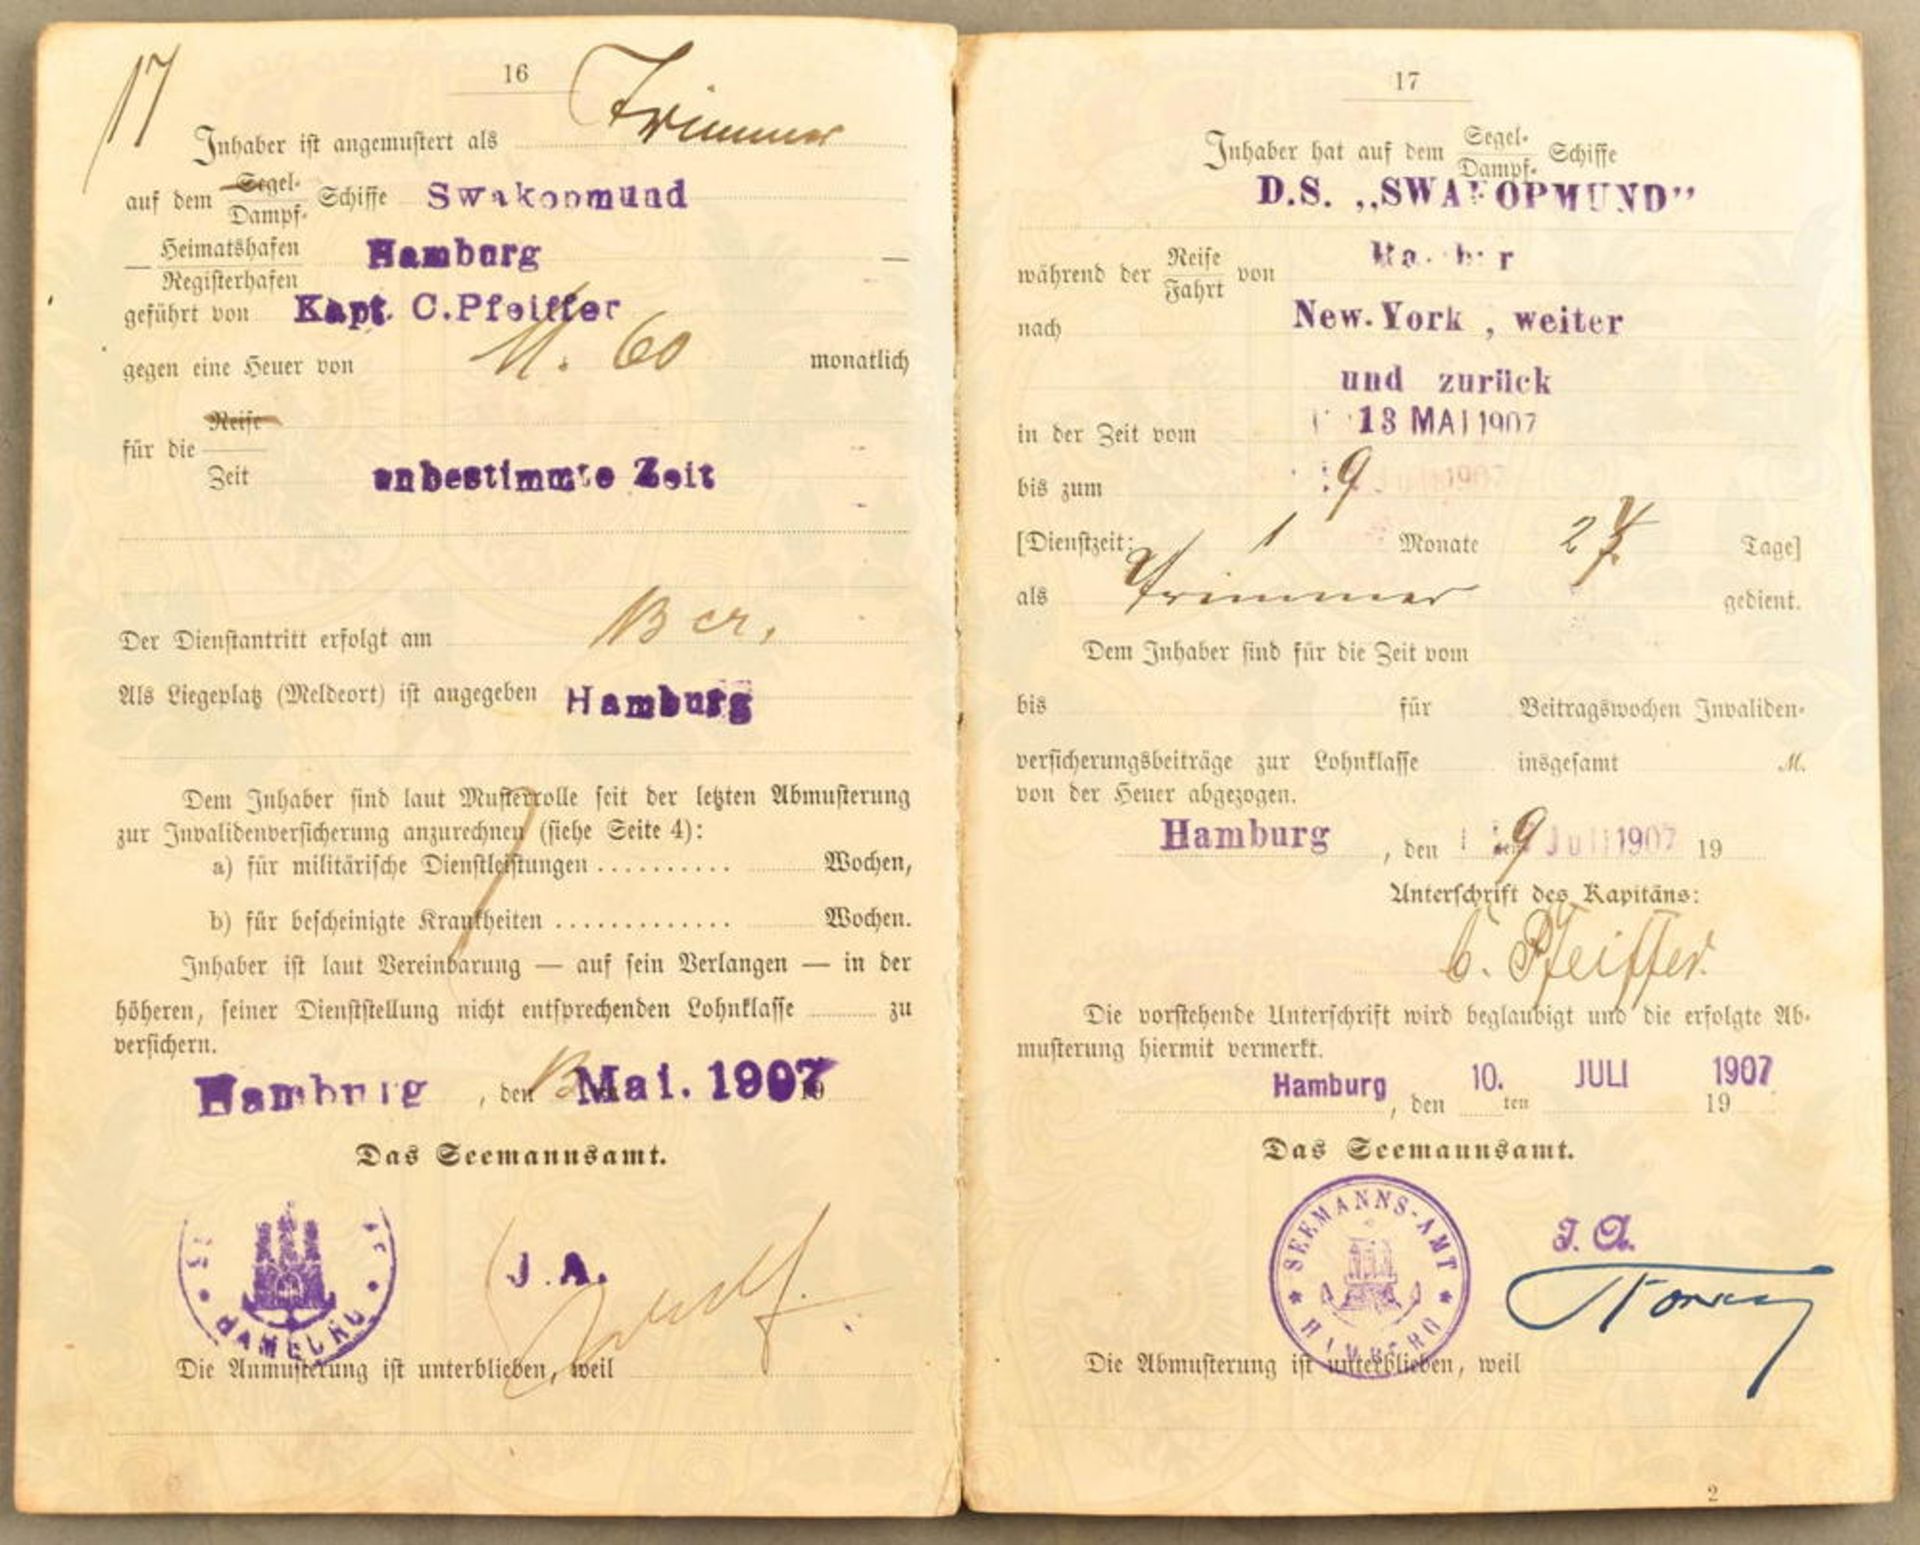 17
16
Inhaber ist angemustert als Trimmer
auf dem Segel- Dampf- Schiffe Swakopmund
Heimatshafen Registerhafen Hamburg
geführt von Kapt. C. Pfeiffer
gegen eine Heuer von M. 60 monatlich
für die Reise Zeit unbestimmte Zeit
Der Dienstantritt erfolgt am 13 cr.
Als Liegeplatz (Meldeort) ist angegeben Hamburg
Dem Inhaber sind laut Musterrolle seit der letzten Abmusterung
zur Invalidenversicherung anzurechnen (siehe Seite 4):
a) für militärische Dienstleistungen .......... Wochen,
b) für bescheinigte Krankheiten ............. Wochen.
Inhaber ist laut Vereinbarung — auf sein Verlangen — in der
höheren, seiner Dienststellung nicht entsprechenden Lohnklasse zu
versichern.
Hamburg, den 13 Mai. 1907 19
Das Seemannsamt.
HAMBURG
J. A.
Die Anmusterung ist unterblieben, weil
17
Inhaber hat auf dem Segel- Dampf- Schiffe
D.S. „SWAKOPMUND”
während der Reise Fahrt von
nach New-York, weiter
und zurück
in der Zeit vom 13 MAI 1907
bis zum 9 Juli 1907
[Dienstzeit: 1 Monate 27 Tage]
als Trimmer gedient.
Dem Inhaber sind für die Zeit vom
bis für Beitragswochen Invaliden-
versicherungsbeiträge zur Lohnklasse insgesamt M.
von der Heuer abgezogen.
Hamburg, den 9 Juli 1907 19
Unterschrift des Kapitäns:
C. Pfeiffer.
Die vorstehende Unterschrift wird beglaubigt und die erfolgte Ab-
musterung hiermit vermerkt.
Hamburg, den 10. ten JULI 1907 19
Das Seemannsamt.
SEEMANNS-AMT HAMBURG
J. A.
Die Abmusterung ist unterblieben, weil
2